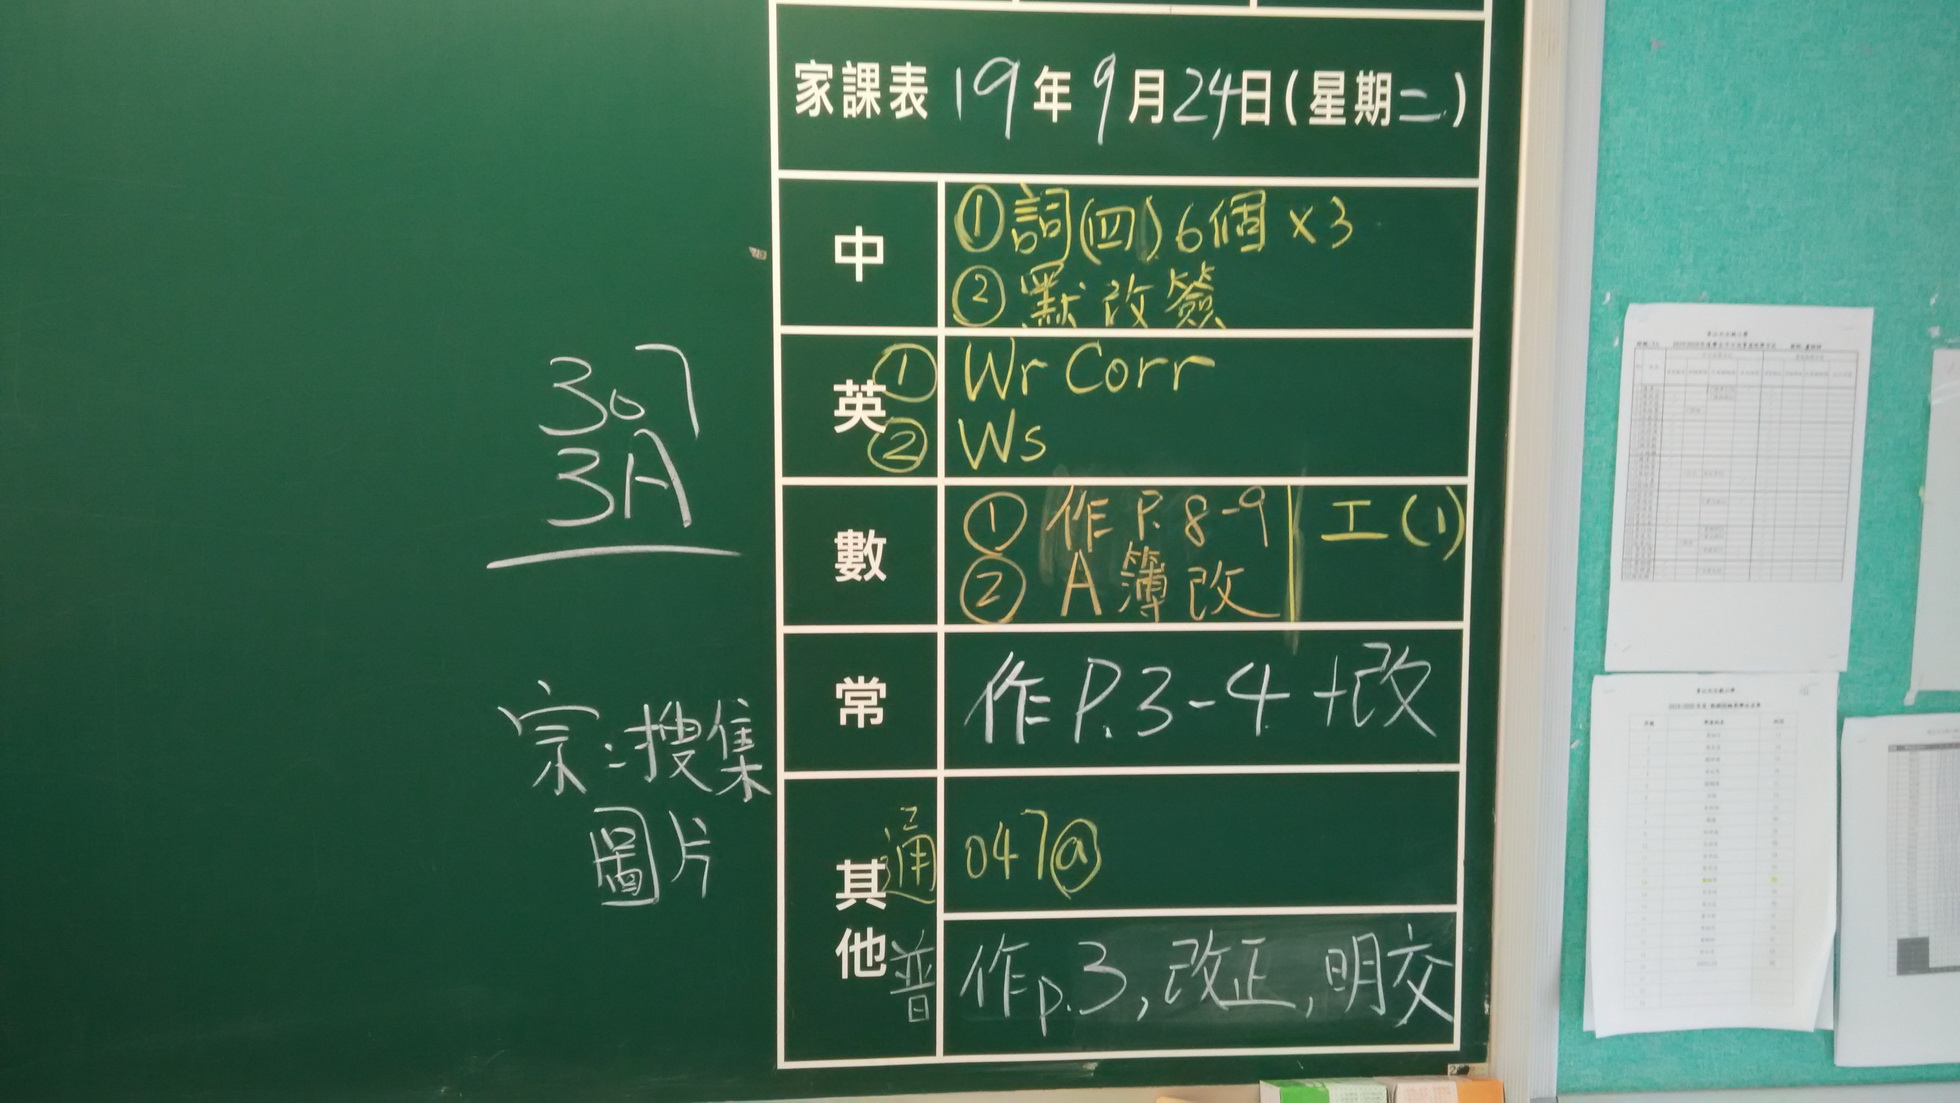 家課表 19年9月24日(星期二)
中
①詞(四)6個 x3
②默改簽
英
① Wr Corr
② Ws
數
① 作 P. 8-9
② A 簿改
工(1)
常
作 P.3-4 +改
其他
通 047ⓐ
普 作p.3,改正,明交
307
3A
宗:搜集
圖片